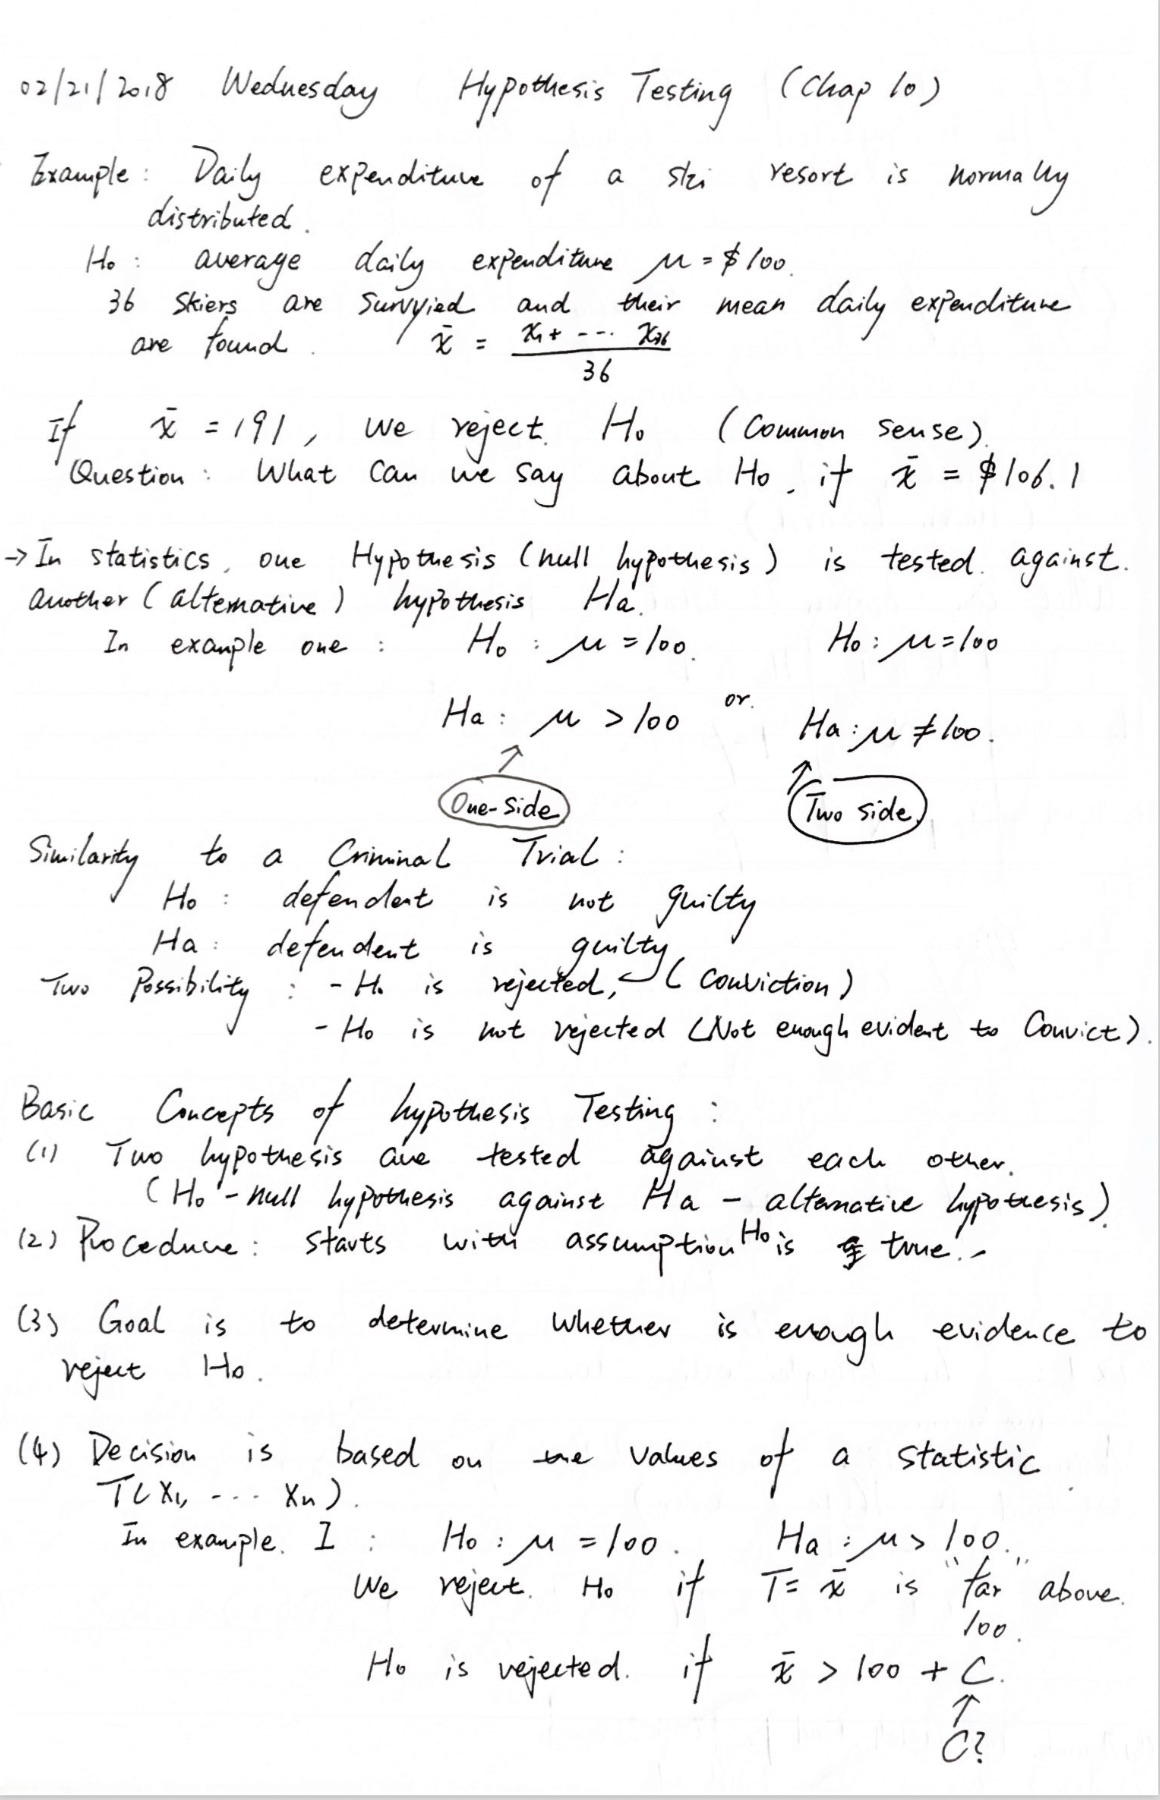 02/21/2018 Wednesday Hypothesis Testing (Chap 10)
Example: Daily expenditure of a ski resort is normally
distributed.
Ho: average daily expenditure μ = $100.
36 Skiers are Survyied and their mean daily expenditure
are found. x̄ = (x₁ + --- x₃₆) / 36
If x̄ = 191, we reject Ho (Common sense)
Question: What Can we say about Ho, if x̄ = $106.1
→ In statistics, one Hypothesis (null hypothesis) is tested against.
another (alternative) hypothesis Ha.
In example one: Ho: μ = 100. Ho: μ = 100
Ha: μ > 100 or. Ha: μ ≠ 100.
One-Side Two side.
Similarity to a Criminal Trial:
Ho: defendent is not guilty
Ha: defendent is guilty
Two Possibility: - Ho is rejected, (Conviction)
- Ho is not rejected (Not enough evident to Convict).
Basic Concepts of hypothesis Testing:
(1) Two hypothesis are tested against each other.
(Ho - null hypothesis against Ha - alternative hypothesis).
(2) Procedure: starts with assumption Ho is true.
(3) Goal is to determine whether is enough evidence to
reject Ho.
(4) Decision is based on the values of a statistic
T(X₁, --- Xn).
In example. I: Ho: μ = 100. Ha: μ > 100.
We reject. Ho if T = x̄ is "far" above.
100.
Ho is rejected. if x̄ > 100 + C.
C?